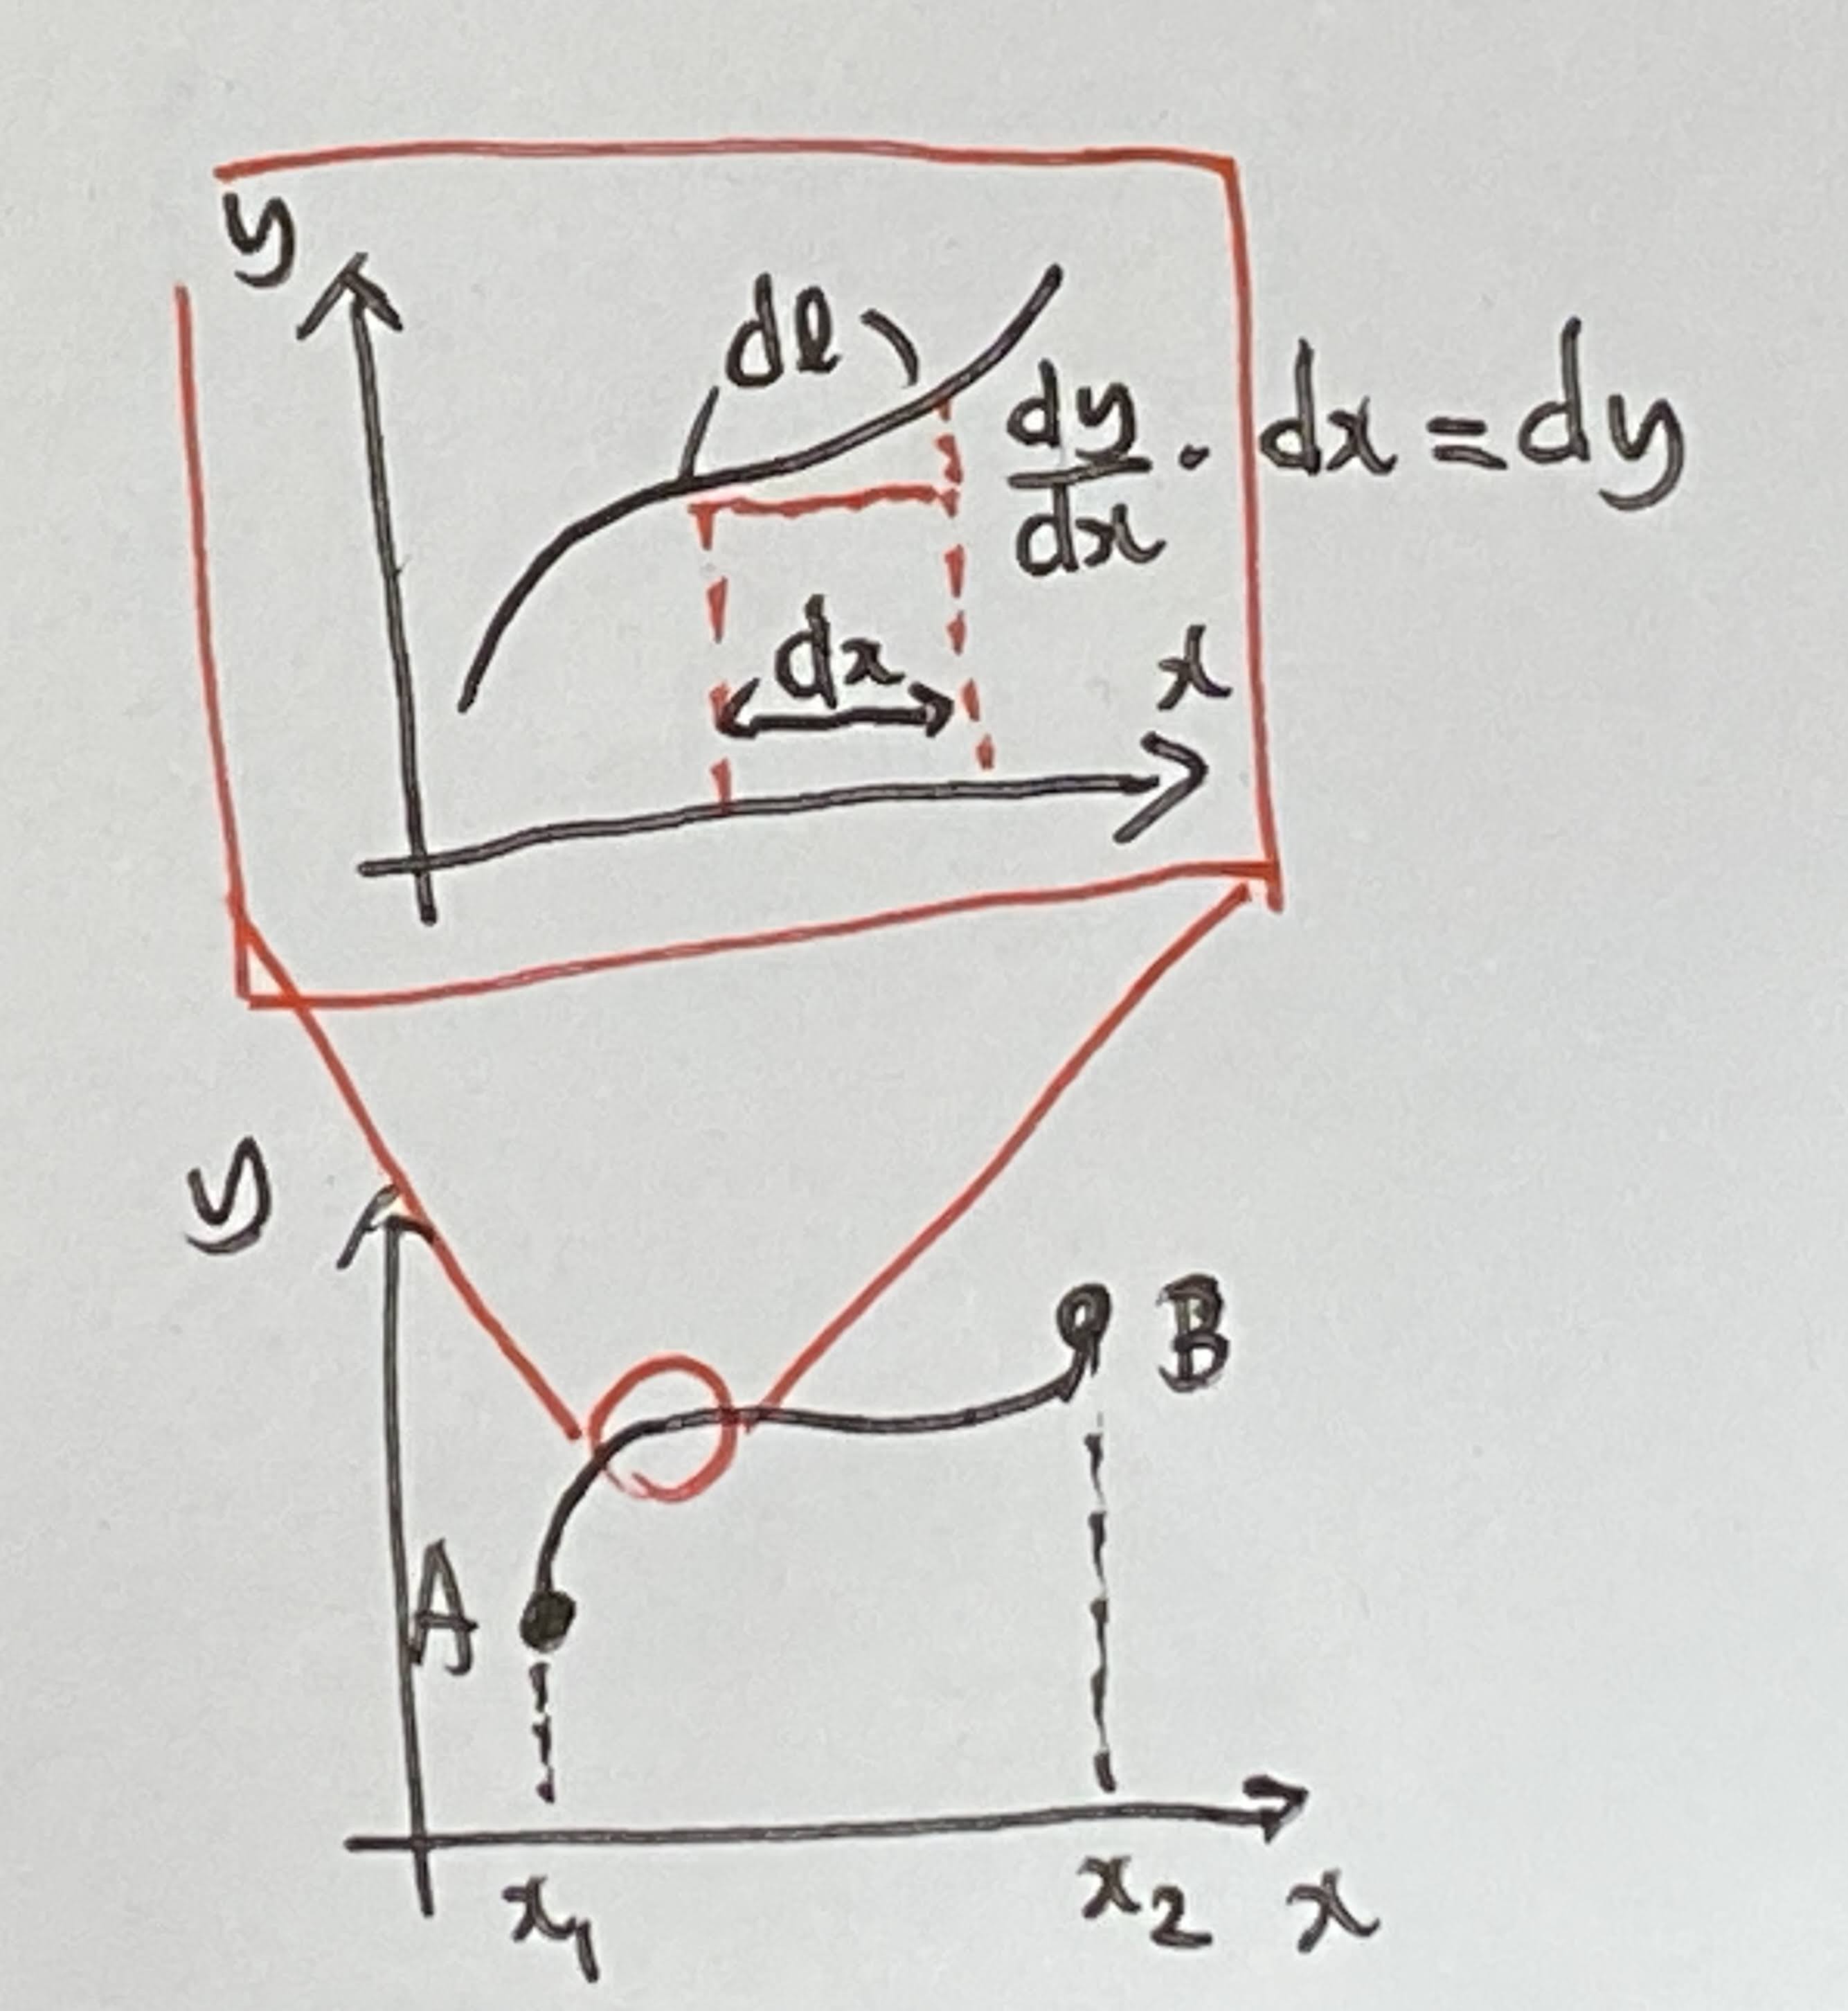 y
dl
dy/dx · dx = dy
dx
x
y
B
A
x₁
x₂
x